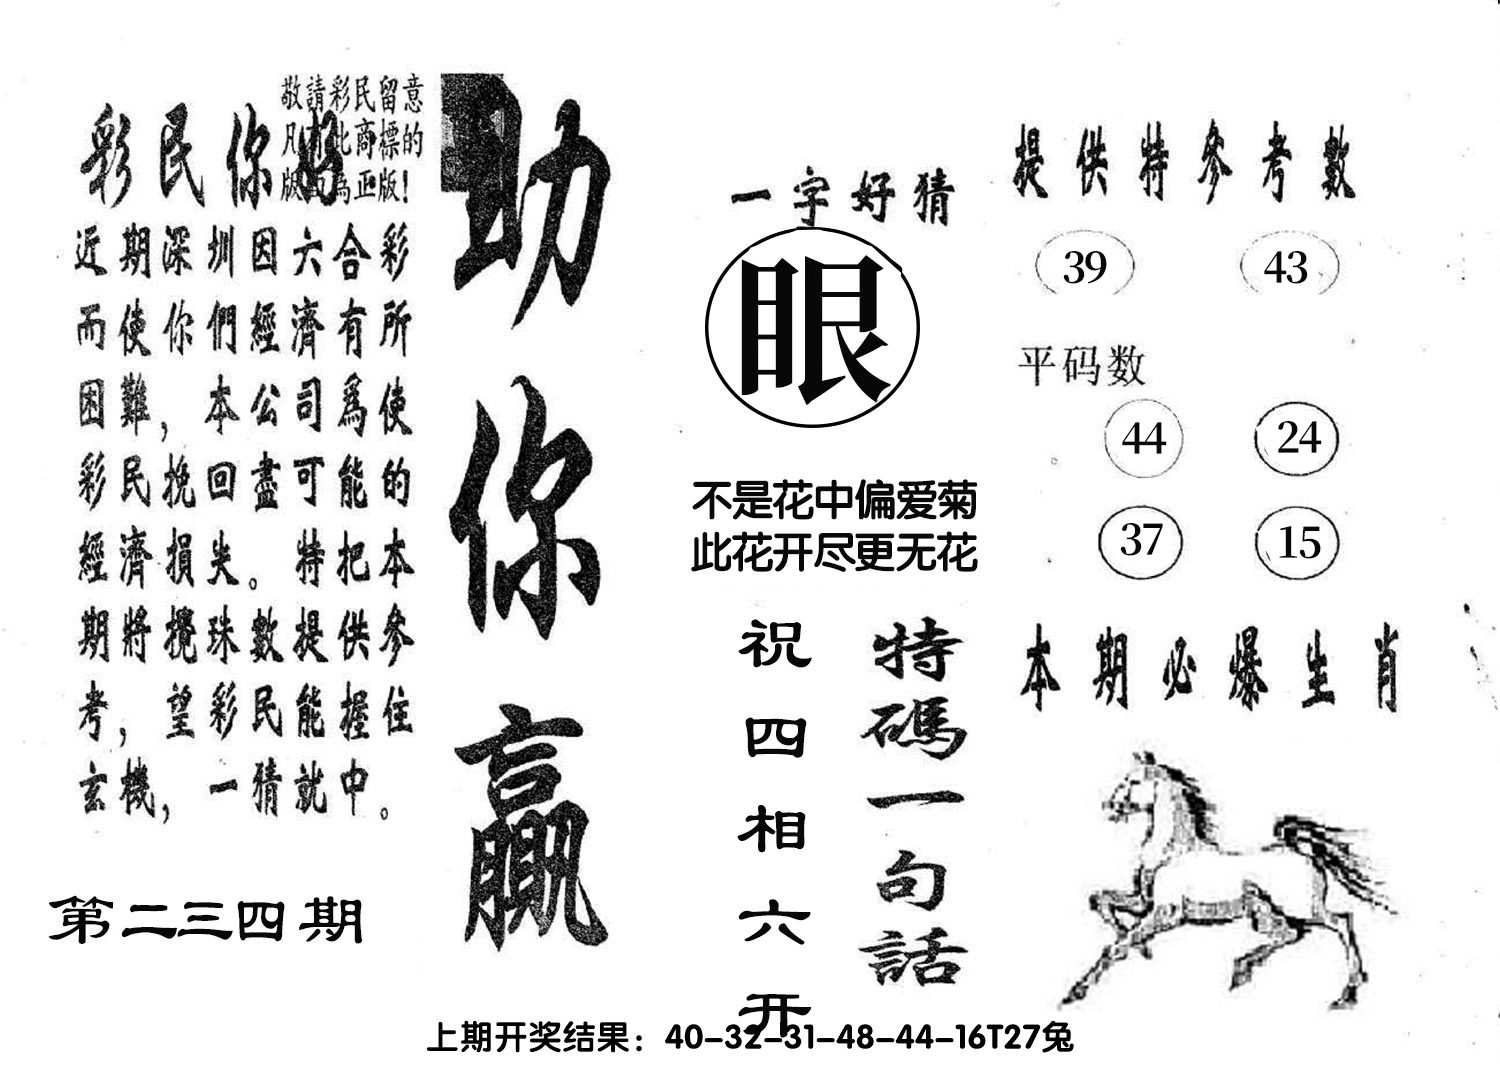 敬請彩民留意
凡有此商標的
版面為正版！
彩民你好
近期深圳因六合彩
而使你們經濟有所
困難，本公司爲使
彩民挽回盡可能的
經濟損失。特把本
期將攪珠數提供參
考，望彩民能握住
玄機，一猜就中。
第二三四期
助你贏
一字好猜
眼
不是花中偏爱菊
此花开尽更无花
特碼一句話
祝四相六开
提供特參考數
39 43
平码数
44 24
37 15
本期必爆生肖
上期开奖结果：40-32-31-48-44-16T27兔